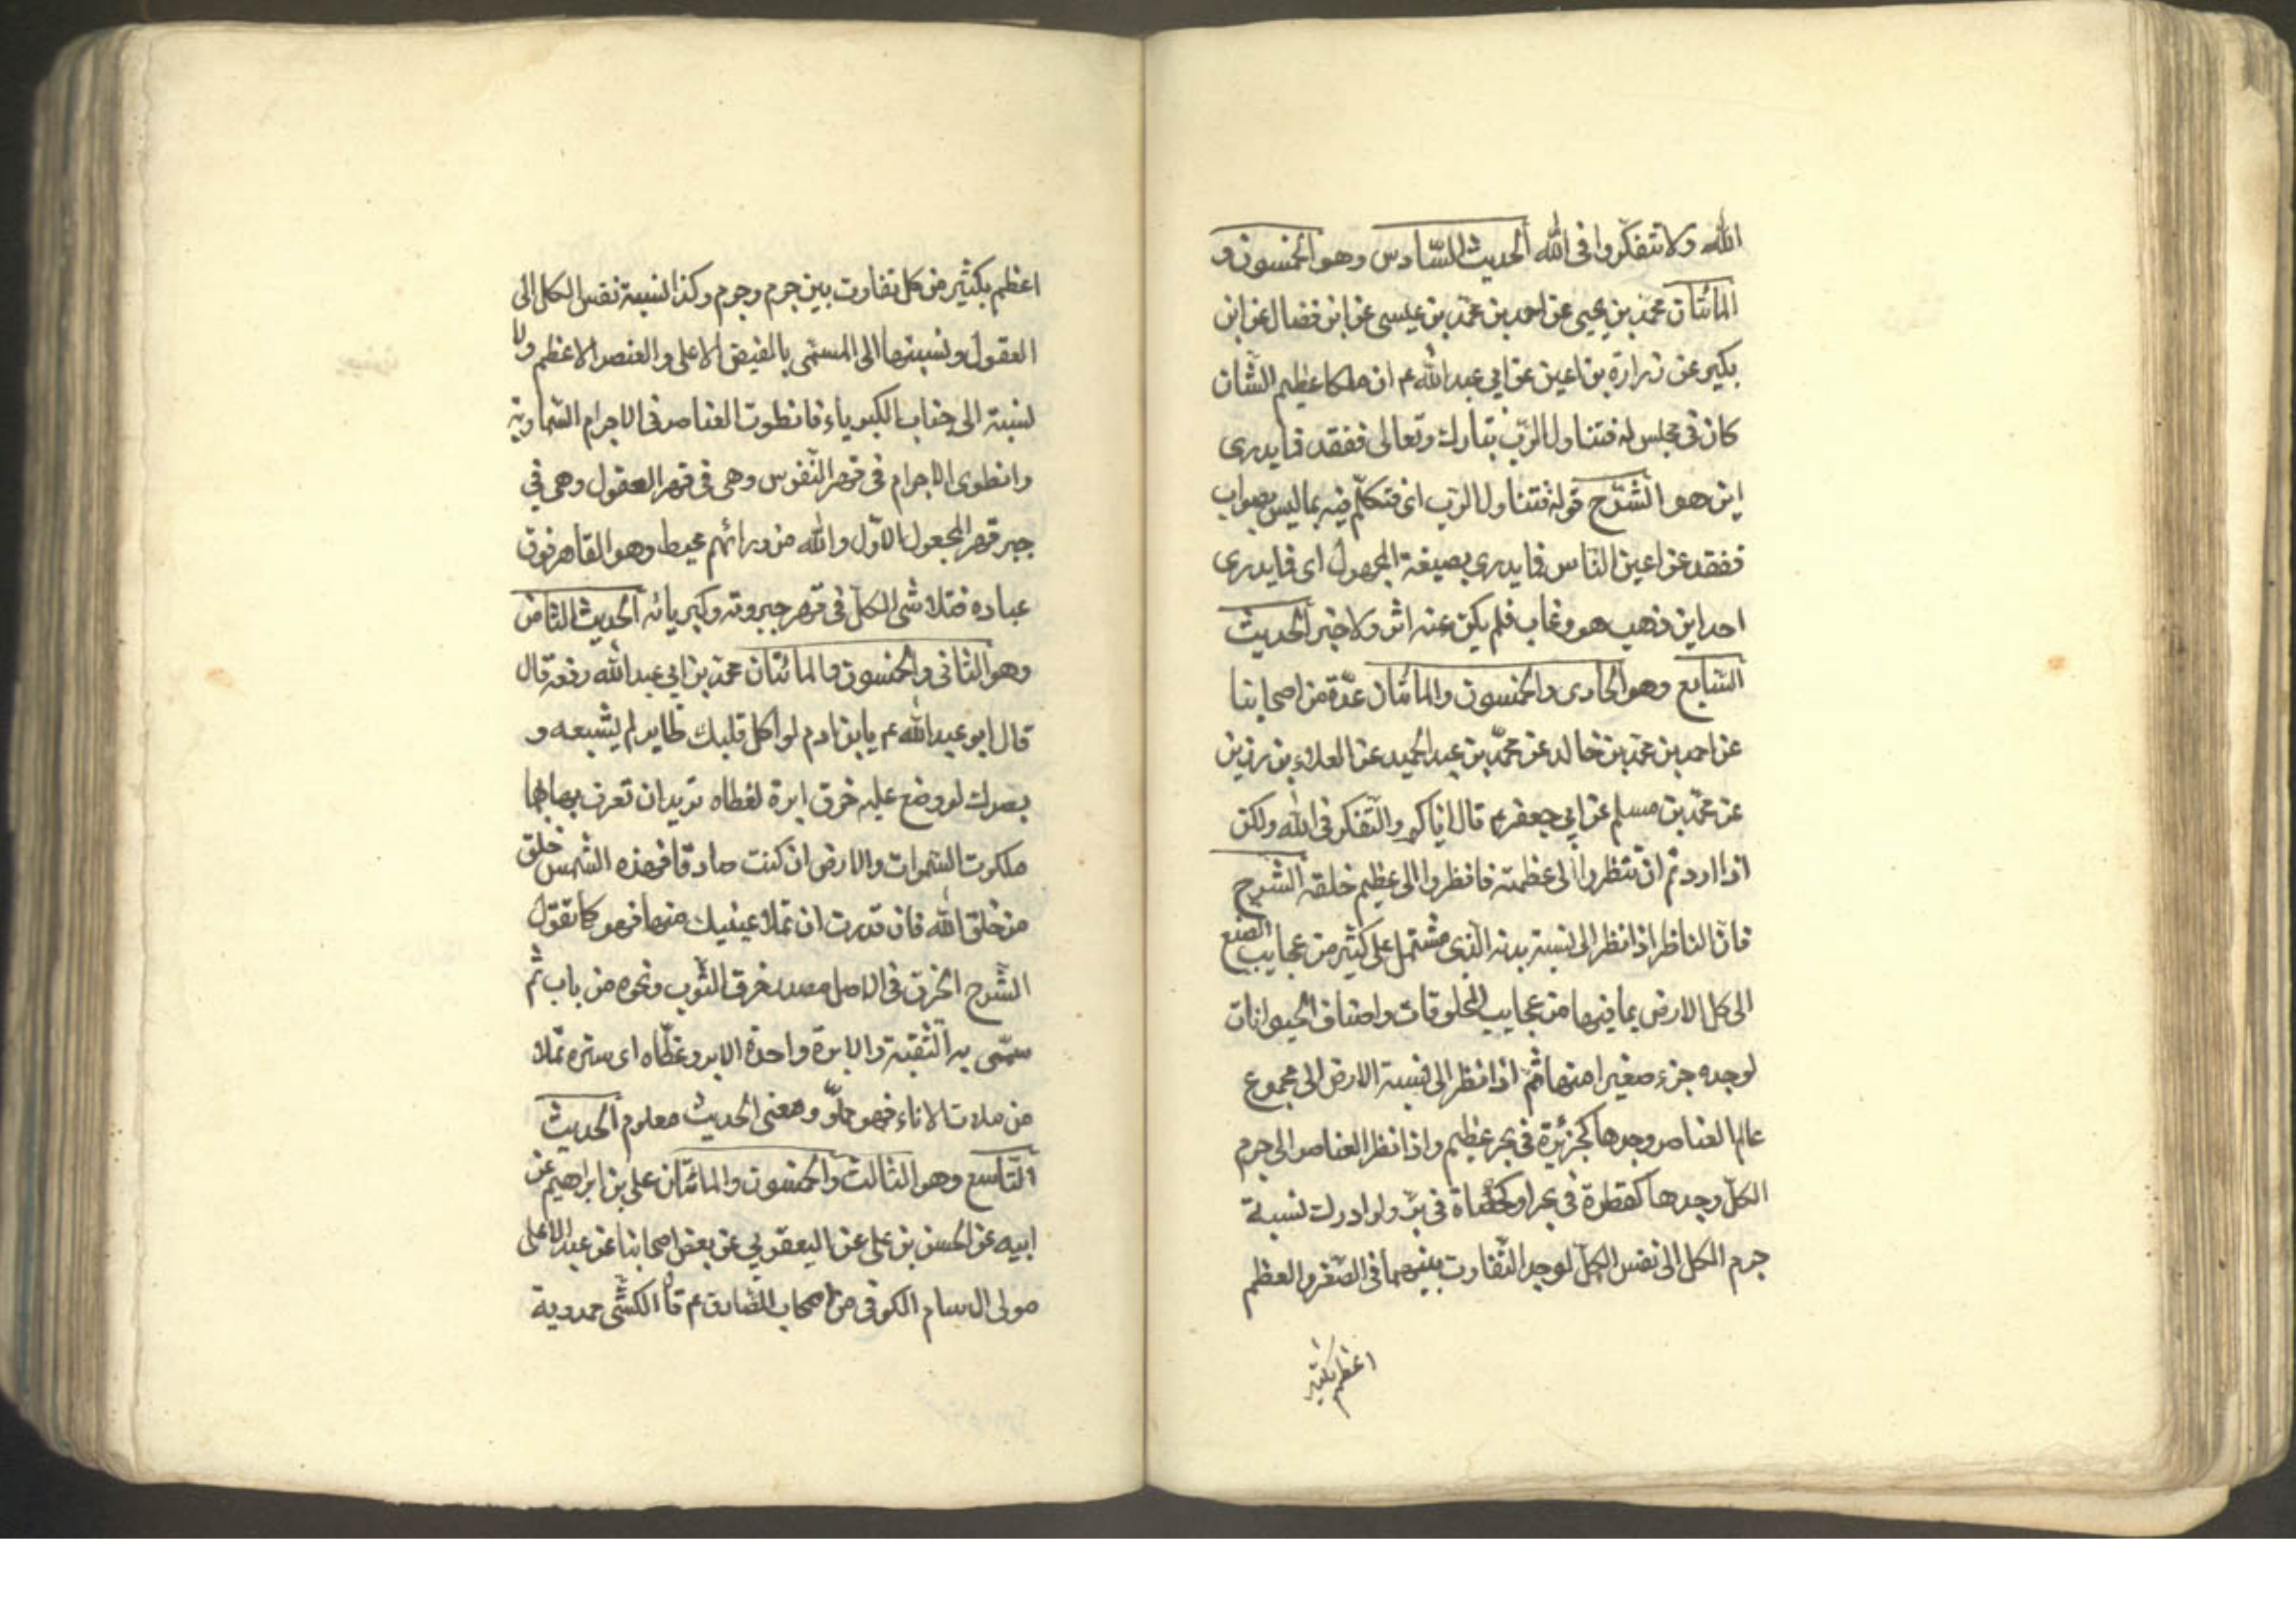 الله ولا تتفكّروا فى الله الحديث السّادس وهو الخمسون و
المائتان محمد بن يحيى عن احمد بن محمّد بن عيسى عن ابن فضال عن ابن
بكير عن زرارة بن اعين عن ابي عبد الله ع م ان ملكا عظيم الشّان
كان فى مجلس له فتناول الرّبّ تبارك وتعالى ففقد فما يدرى
اين هو الشّرح قوله فتناول الربّ اى فتكلّم فيه بما ليس بصواب
ففقد عن اعين النّاس فما يدرى بصيغة المجهول اى فما يدرى
احد اين ذهب هو وغاب فلم يكن عنه اثر ولا خبر الحديث
السّابع وهو الحادى والخمسون والمائتان عدّة من اصحابنا
عن احمد بن محمّد بن خالد عن محمّد بن عبد الحميد عن العلاء بن رزين
عن محمّد بن مسلم عن ابي جعفر ع م قال اياكم والتّفكر فى الله ولكن
اذا اردتم ان تنظروا الى عظمته فانظروا الى عظيم خلقه الشّرح
فانّ الناظر اذا نظر الى نسبة بدنه الّذى مشتمل على كثير من عجايب الصّنع
الى كل الارض بما فيها من عجايب المخلوقات واصناف الحيوانات
لوجده جزء صغيرا منها ثمّ اذا نظر الى نسبة الارض الى مجموع
عالم العناصر وجدها كجزيرة فى بحر عظيم واذا نظر العناصر الى جرم
الكلّ وجدها كقطرة فى بحر او كحصاة فى برّ ولو ادرك نسبة
جرم الكل الى نفس الكلّ لوجد التّفاوت بينهما فى الصّغر والعظم
اعظم بكثير
اعظم بكثير من كل تفاوت بين جرم وجرم وكذا نسبة نفس الكل الى
العقول ونسبتها الى المسمّى بالفيض الاعلى والعنصر الاعظم ولا
نسبة الى جناب الكبرياء فانطوت العناصر فى الاجرام السّماوية
وانطوى الاجرام فى قهر النّفوس وهى فى قهر العقول وهى فى
جبر قهر المجعول الاوّل والله من ورائهم محيط وهو القاهر فوق
عباده فتلاشى الكلّ فى قهر جبروته وكبريائه الحديث الثّامن
وهو الثانى والخمسون والمائتان محمّد بن ابي عبد الله رفعه قال
قال ابو عبد الله ع م يا بن ادم لو اكل قلبك طاير لم يشبعه و
بصرك لو وضع عليه خرق ابرة لغطاه تريد ان تعرف بهما
ملكوت السّموات والارض ان كنت صادقا فهذه الشّمس خلق
من خلق الله فان قدرت ان تملا عينيك منها فهو كما تقول
الشّرح الخرق فى الاصل مصدر خرق الثّوب ونحوه من باب ثمّ
سمّى به الثّقبة والابرة واحدة الابر وغطّاه اى ستره تملا
من ملات الاناء فهو مملوّ ومعنى الحديث معلوم الحديث
التّاسع وهو الثالث والخمسون والمائتان على بن ابراهيم عن
ابيه عن الحسن بن على عن اليعقوبي عن بعض اصحابنا عن عبد الاعلى
مولى ال سام الكوفى من اصحاب الصّادق ع م قال الكشّى حمدوية